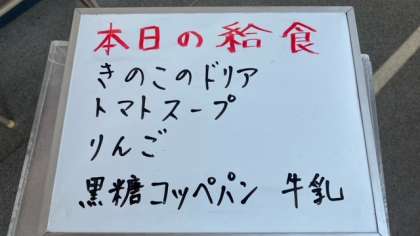 本日の給食
きのこのドリア
トマトスープ
りんご
黒糖コッペパン 牛乳